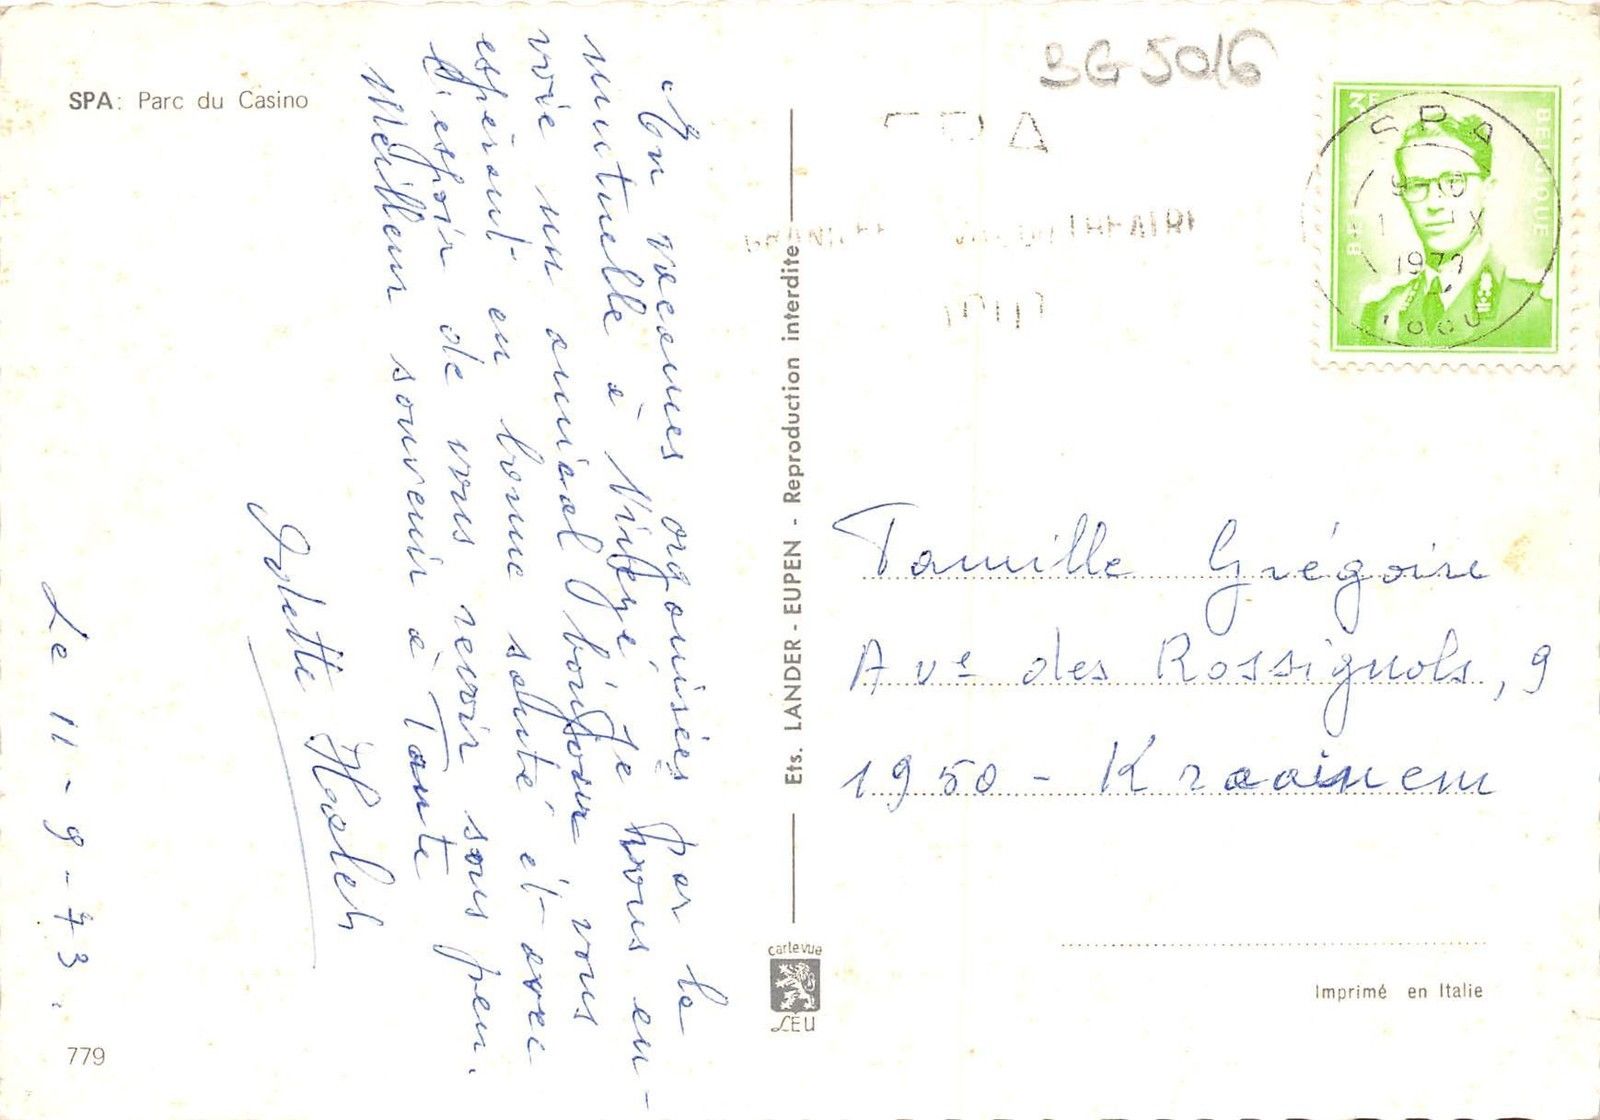 SPA: Parc du Casino
En vacances organisées par la
mutuelle à Nivezé je vous en-
voie un amical bonjour vous
espérant en bonne santé et avec
l'espoir de vous revoir sous peu.
Meilleur souvenir à Tante
Le 11-9-73.
779
Ets. LANDER - EUPEN - Reproduction interdite
cartevue
LEU
BG5016
SPA
THEATRE
3F
BELGIQUE
SPA
1973
Famille Grégoire
Ave des Rossignols, 9
1950 - Kraainem
Imprimé en Italie